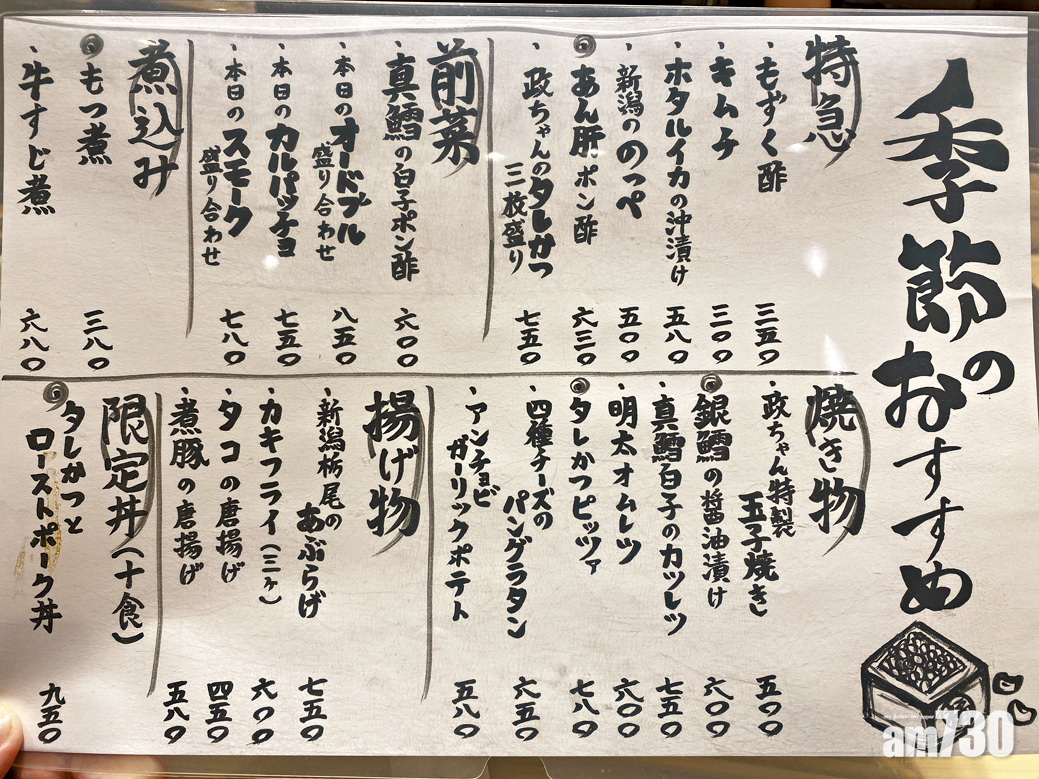 季節のおすすめ
特急
・もずく酢 三五〇
・キムチ 三〇〇
・ホタルイカの沖漬け 五八〇
・新潟ののっぺ 五〇〇
◎あん肝ポン酢 六三〇
・政ちゃんのタレかつ
三枚盛り 七五〇
前菜
・真鱈の白子ポン酢 六〇〇
・本日のオードブル
盛り合わせ 八五〇
・本日のカルパッチョ 七五〇
・本日のスモーク
盛り合わせ 七八〇
煮込み
◎もつ煮 三八〇
・牛すじ煮 六八〇
焼き物
・政ちゃん特製
玉子焼き 五〇〇
◎銀鱈の醤油漬け 六〇〇
・真鱈白子のカツレツ 七五〇
・明太オムレツ 六〇〇
◎タレかつピッツァ 七八〇
・四種チーズの
パングラタン 六五〇
・アンチョビ
ガーリックポテト 五八〇
揚げ物
・新潟栃尾の
あぶらげ 七五〇
・カキフライ(三ヶ) 六〇〇
・タコの唐揚げ 四五〇
・煮豚の唐揚げ 五八〇
限定丼(十食)
◎タレかつと
ローストポーク丼 九五〇
am730